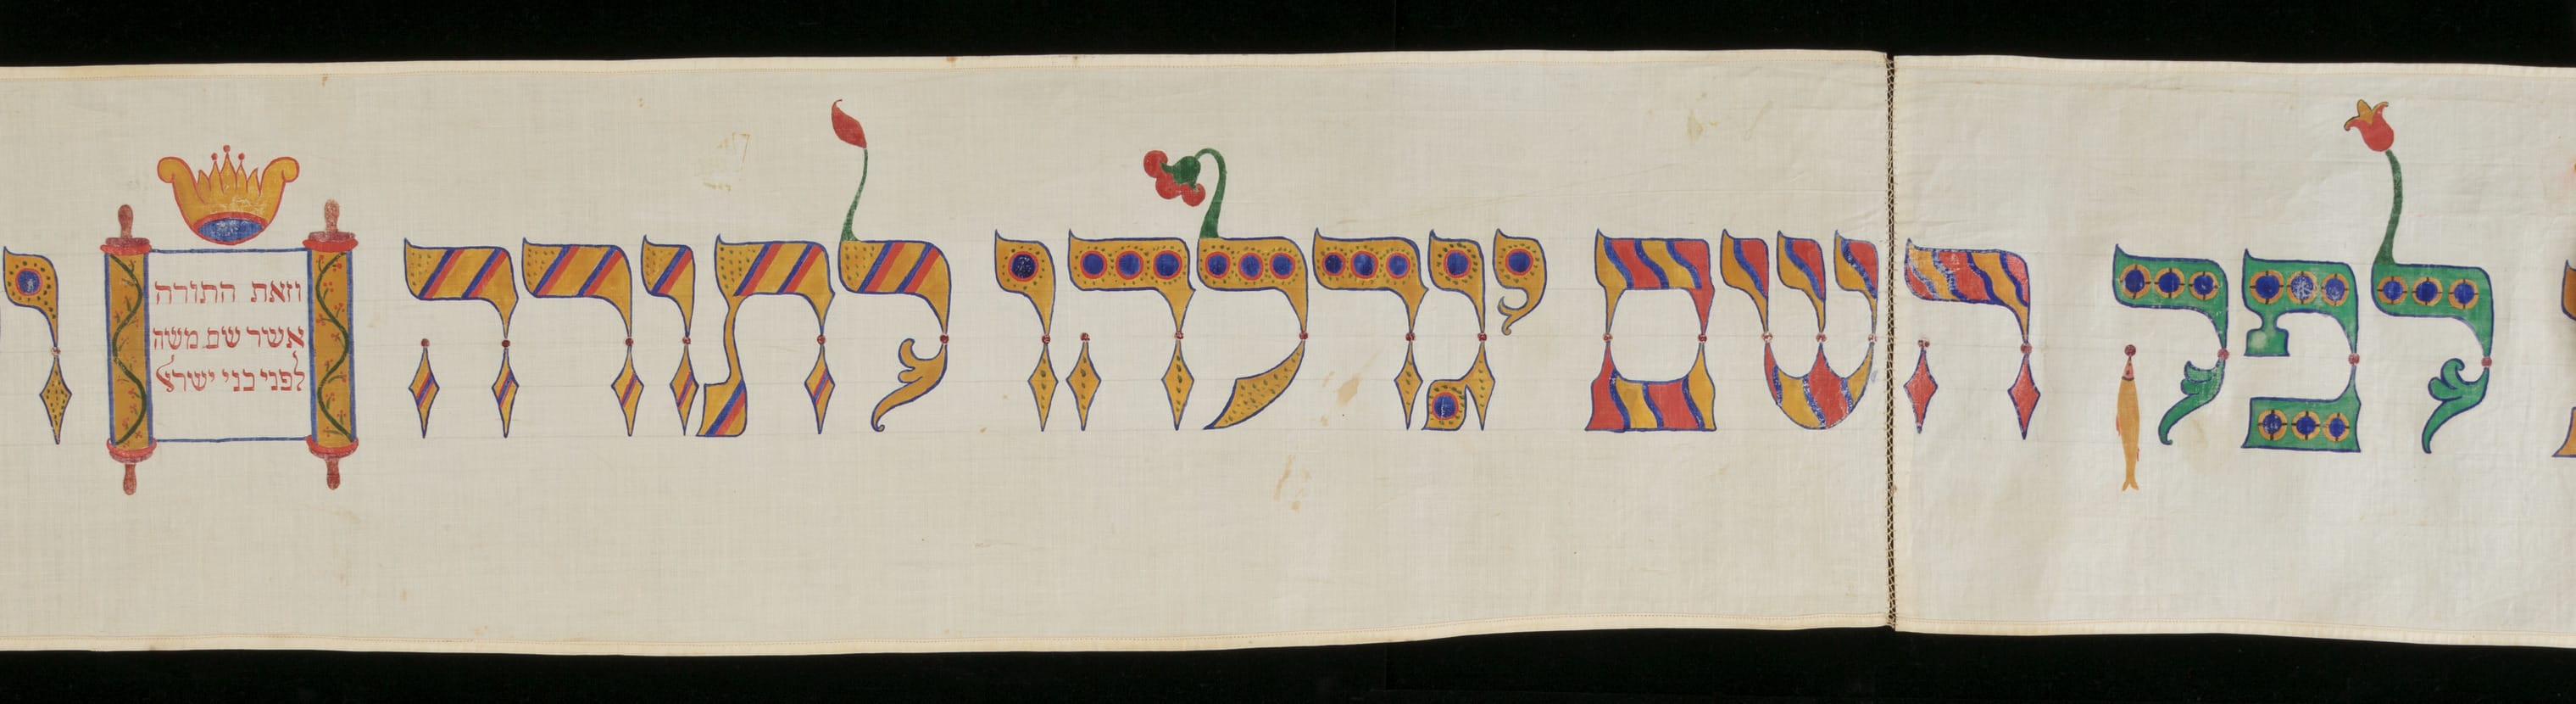 לפק השם יגדלהו לתורה ו
וזאת התורה
אשר שם משה
לפני בני ישראל